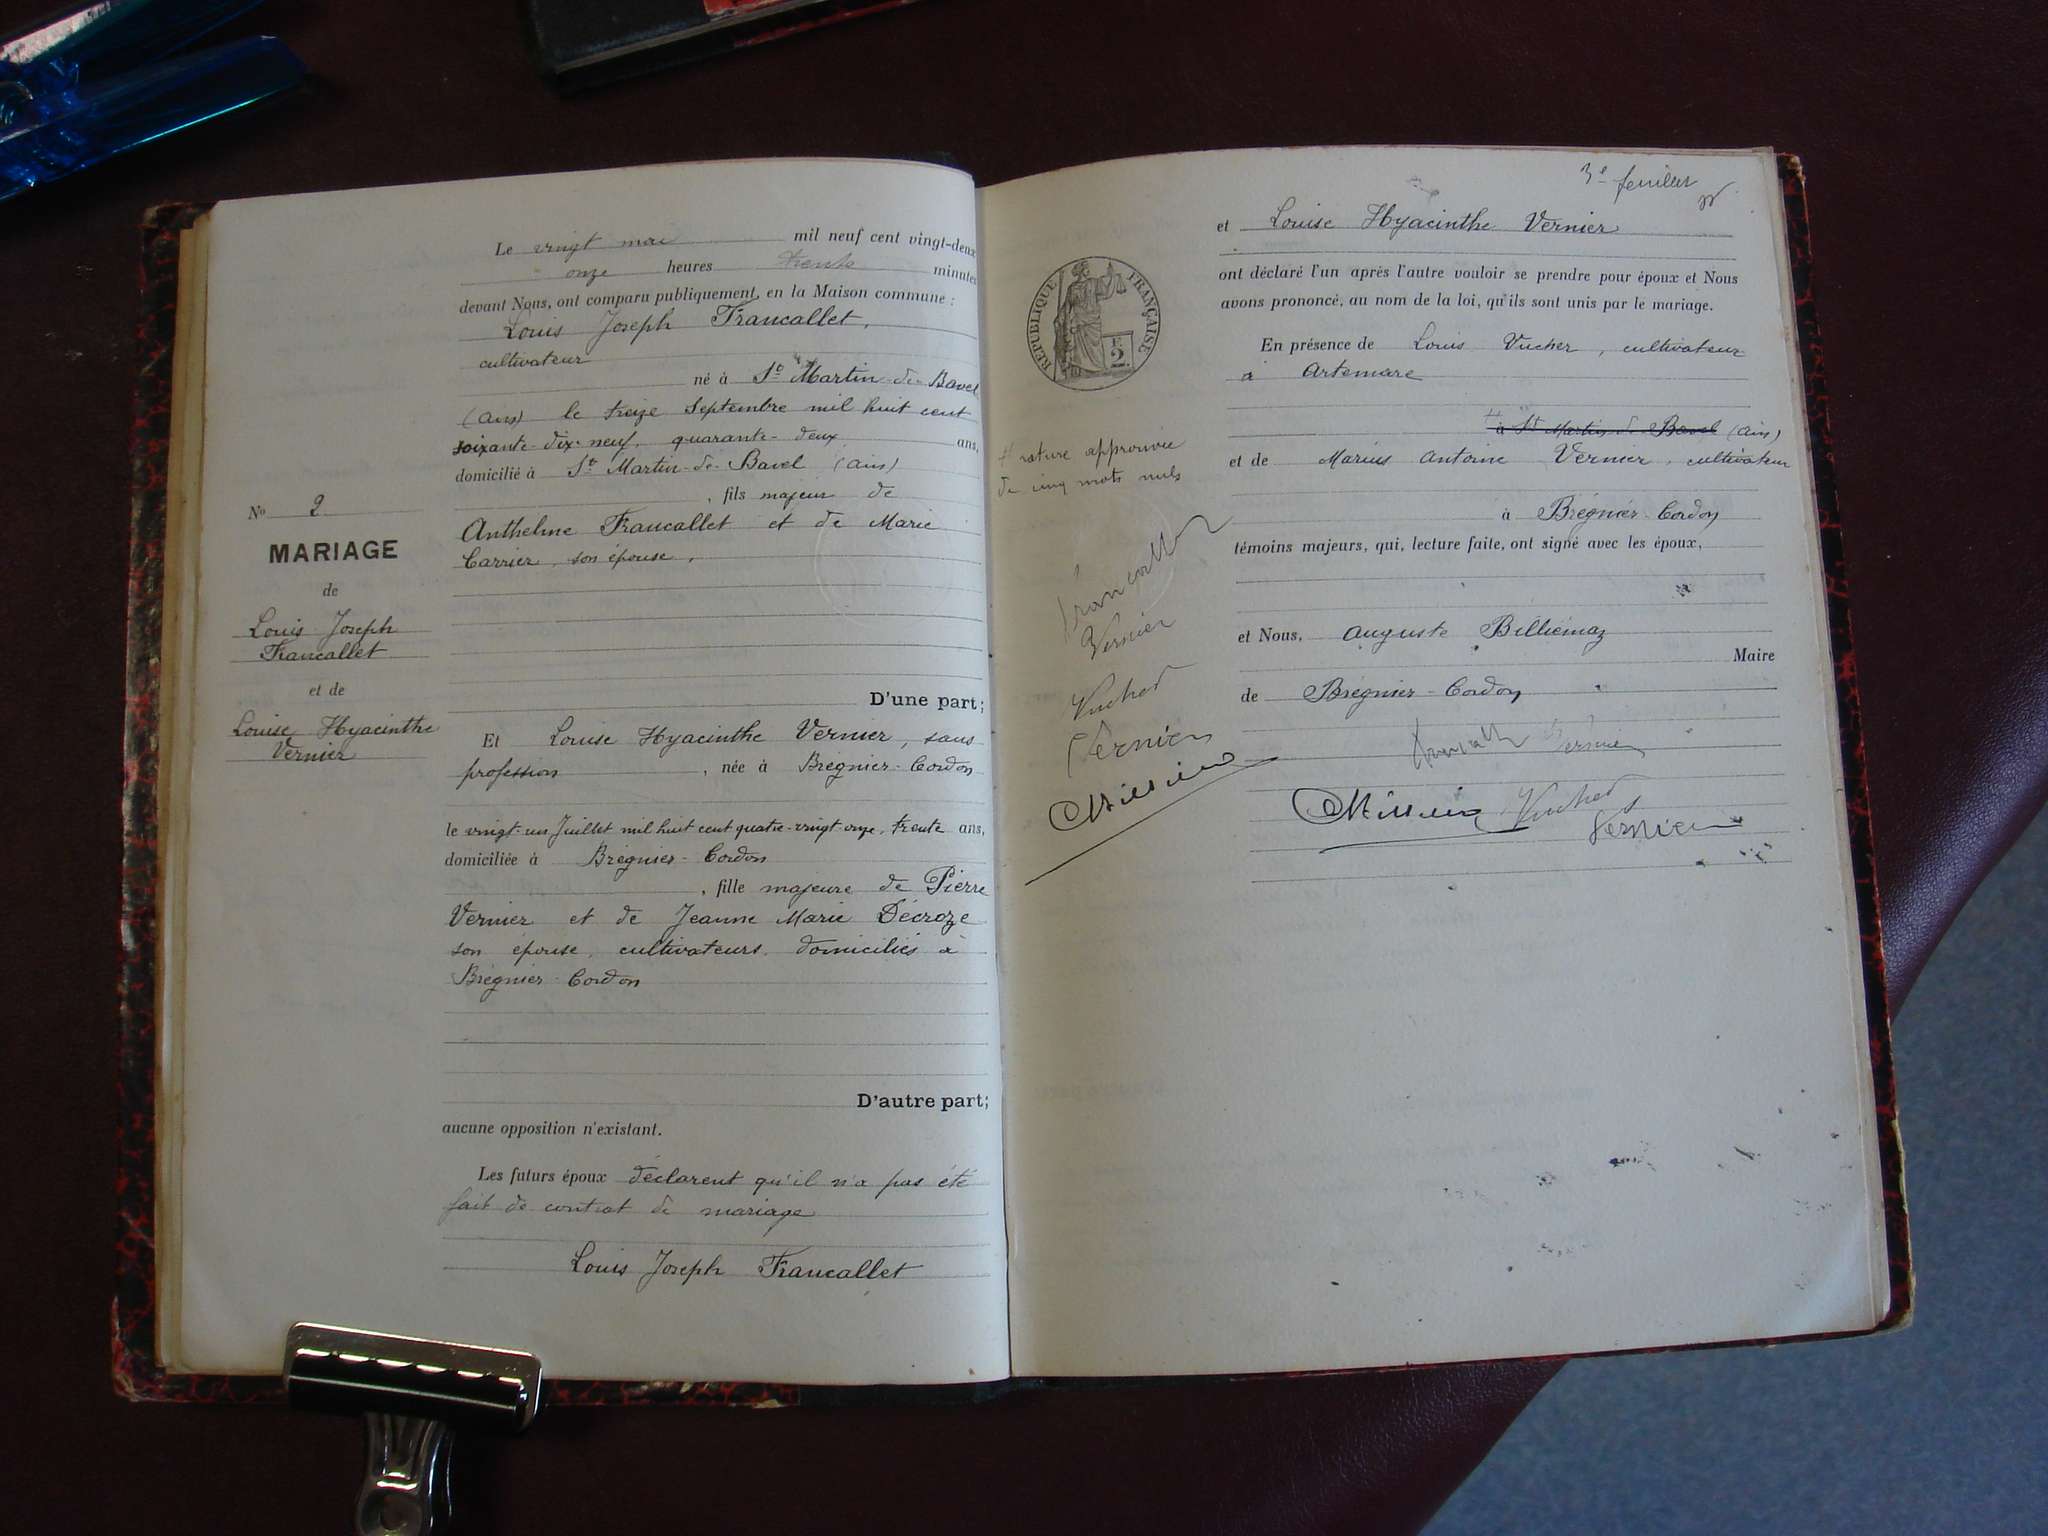 Le vingt mai mil neuf cent vingt-deux
onze heures trente minutes
devant Nous, ont comparu publiquement en la Maison commune :
Louis Joseph Francallet,
cultivateur
né à St Martin-de-Bavel
(Ain) le treize Septembre mil huit cent
soixante-dix-neuf, quarante-deux ans,
domicilié à St Martin-de-Bavel (Ain)
, fils majeur de
Anthelme Francallet et de Marie
Carrier, son épouse,
No 2
MARIAGE
de
Louis Joseph
Francallet
et de
Louise Hyacinthe
Vernier
D'une part;
Et Louise Hyacinthe Vernier, sans
profession , née à Brégnier-Cordon
le vingt-un Juillet mil huit cent quatre-vingt-onze, trente ans,
domiciliée à Brégnier-Cordon
, fille majeure de Pierre
Vernier et de Jeanne Marie Décroze
son épouse, cultivateurs, domiciliés à
Brégnier-Cordon
D'autre part;
aucune opposition n'existant.
Les futurs époux déclarent qu'il n'a pas été
fait de contrat de mariage
Louis Joseph Francallet
3e feuillet
et Louise Hyacinthe Vernier
ont déclaré l'un après l'autre vouloir se prendre pour époux et Nous
avons prononcé, au nom de la loi, qu'ils sont unis par le mariage.
RÉPUBLIQUE FRANÇAISE
F.
2.
En présence de Louis Vucher, cultivateur
à Artemare
# à St Martin-de-Bavel (Ain)
et de Marius Antoine Vernier, cultivateur
à Brégnier-Cordon
témoins majeurs, qui, lecture faite, ont signé avec les époux,
et Nous, Auguste Billiémaz
Maire
de Brégnier-Cordon
# rature approuvée
de cinq mots nuls
Francallet
Vernier
Vucher
Vernier
Francallet Vernier
Vucher
Vernier